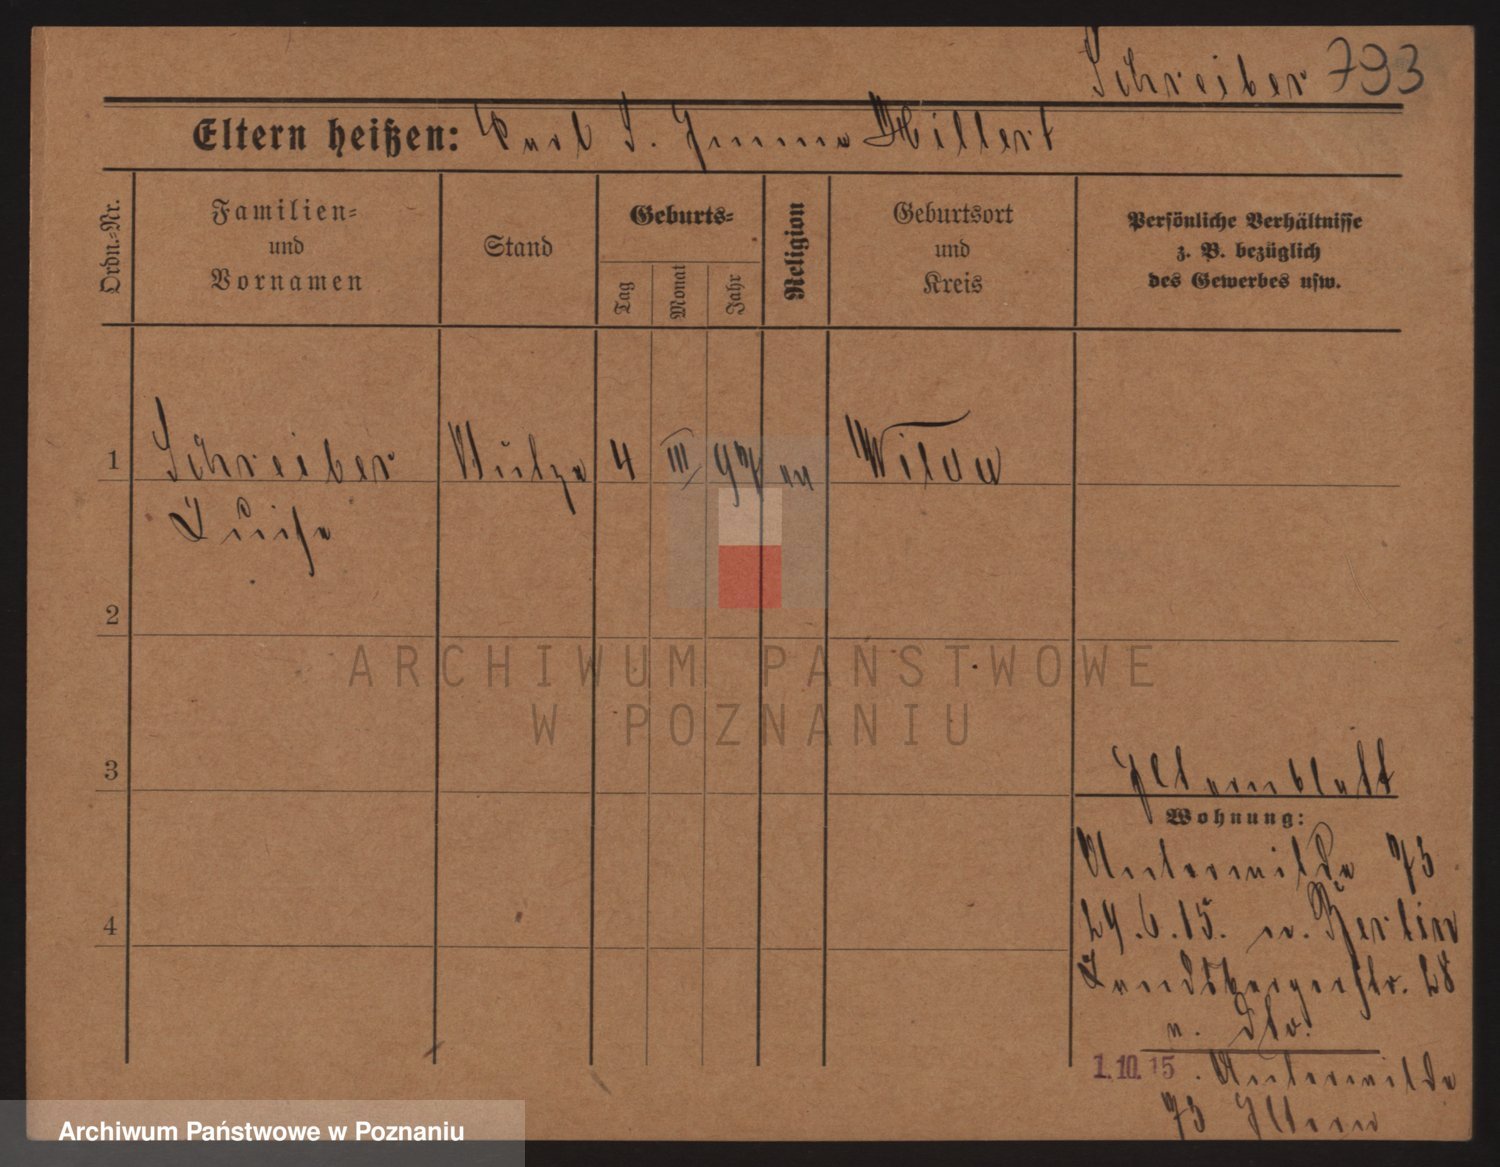 Schreiber 793
Eltern heißen: Karl S. Emma Hillert
Ordn.-Nr.
Familien-
und
Vornamen
Stand
Geburts-
Tag
Monat
Jahr
Religion
Geburtsort
und
Kreis
Persönliche Verhältnisse
z. B. bezüglich
des Gewerbes usw.
1 Schreiber Stütze 4 III 97 ev Wilda
Luise
2
ARCHIWUM PAŃSTWOWE
W POZNANIU
3
Elternblatt
Wohnung:
Unterwilda 75
29.6.15. n. Berlin
4
Landsbergerstr. 28
1.10.15. Unterwilda
75 Eltern
Archiwum Państwowe w Poznaniu